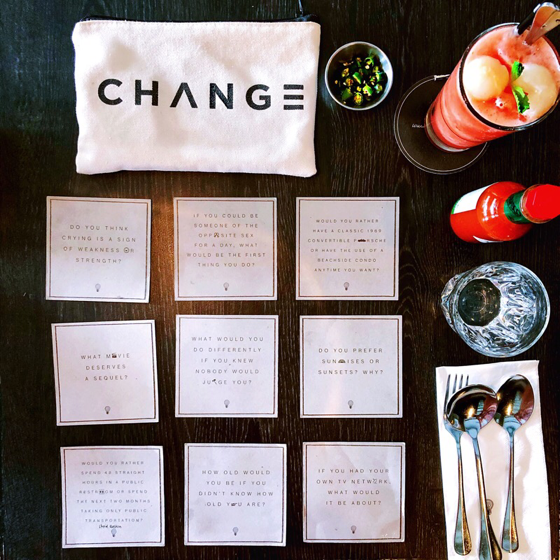 CHANGE
DO YOU THINK
CRYING IS A SIGN
OF WEAKNESS OR
STRENGTH?
IF YOU COULD BE
SOMEONE OF THE
OPPOSITE SEX
FOR A DAY, WHAT
WOULD BE THE FIRST
THING YOU DO?
WOULD YOU RATHER
HAVE A CLASSIC 1969
CONVERTIBLE PORSCHE
OR HAVE THE USE OF A
BEACHSIDE CONDO
ANYTIME YOU WANT?
WHAT MOVIE
DESERVES
A SEQUEL?
WHAT WOULD YOU
DO DIFFERENTLY
IF YOU KNEW
NOBODY WOULD
JUDGE YOU?
DO YOU PREFER
SUNRISES OR
SUNSETS? WHY?
WOULD YOU RATHER
SPEND 48 STRAIGHT
HOURS IN A PUBLIC
RESTROOM OR SPEND
THE NEXT TWO MONTHS
TAKING ONLY PUBLIC
TRANSPORTATION?
HOW OLD WOULD
YOU BE IF YOU
DIDN'T KNOW HOW
OLD YOU ARE?
IF YOU HAD YOUR
OWN TV NETWORK,
WHAT WOULD
IT BE ABOUT?